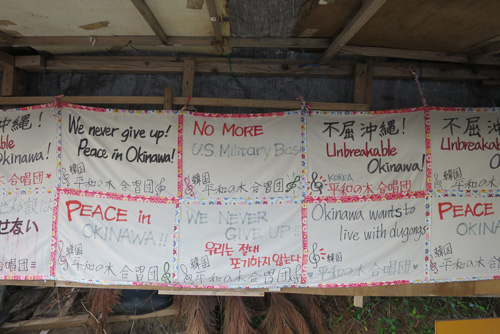 沖縄!
Unbreakable
Okinawa!
韓国
平和の木合唱団
We never give up!
Peace in Okinawa!
韓国
平和の木 合唱団
NO MORE
U.S. Military Base
韓国
平和の木 合唱団
不屈 沖縄!
Unbreakable
Okinawa!
KOREA
平和の木 合唱団
不屈 沖縄
Unbreakab
Okinawa
韓国
平和の木 合唱団
せない
合唱団
PEACE in
OKINAWA!!
韓国
平和の木 合唱団
WE NEVER
GIVE UP!
우리는 절대
포기하지 않는다
韓国
平和の木 合唱団
Okinawa wants to
live with dugongs
韓国
平和の木 合唱団
PEACE
OKINAW
韓国
平和の木 合唱団